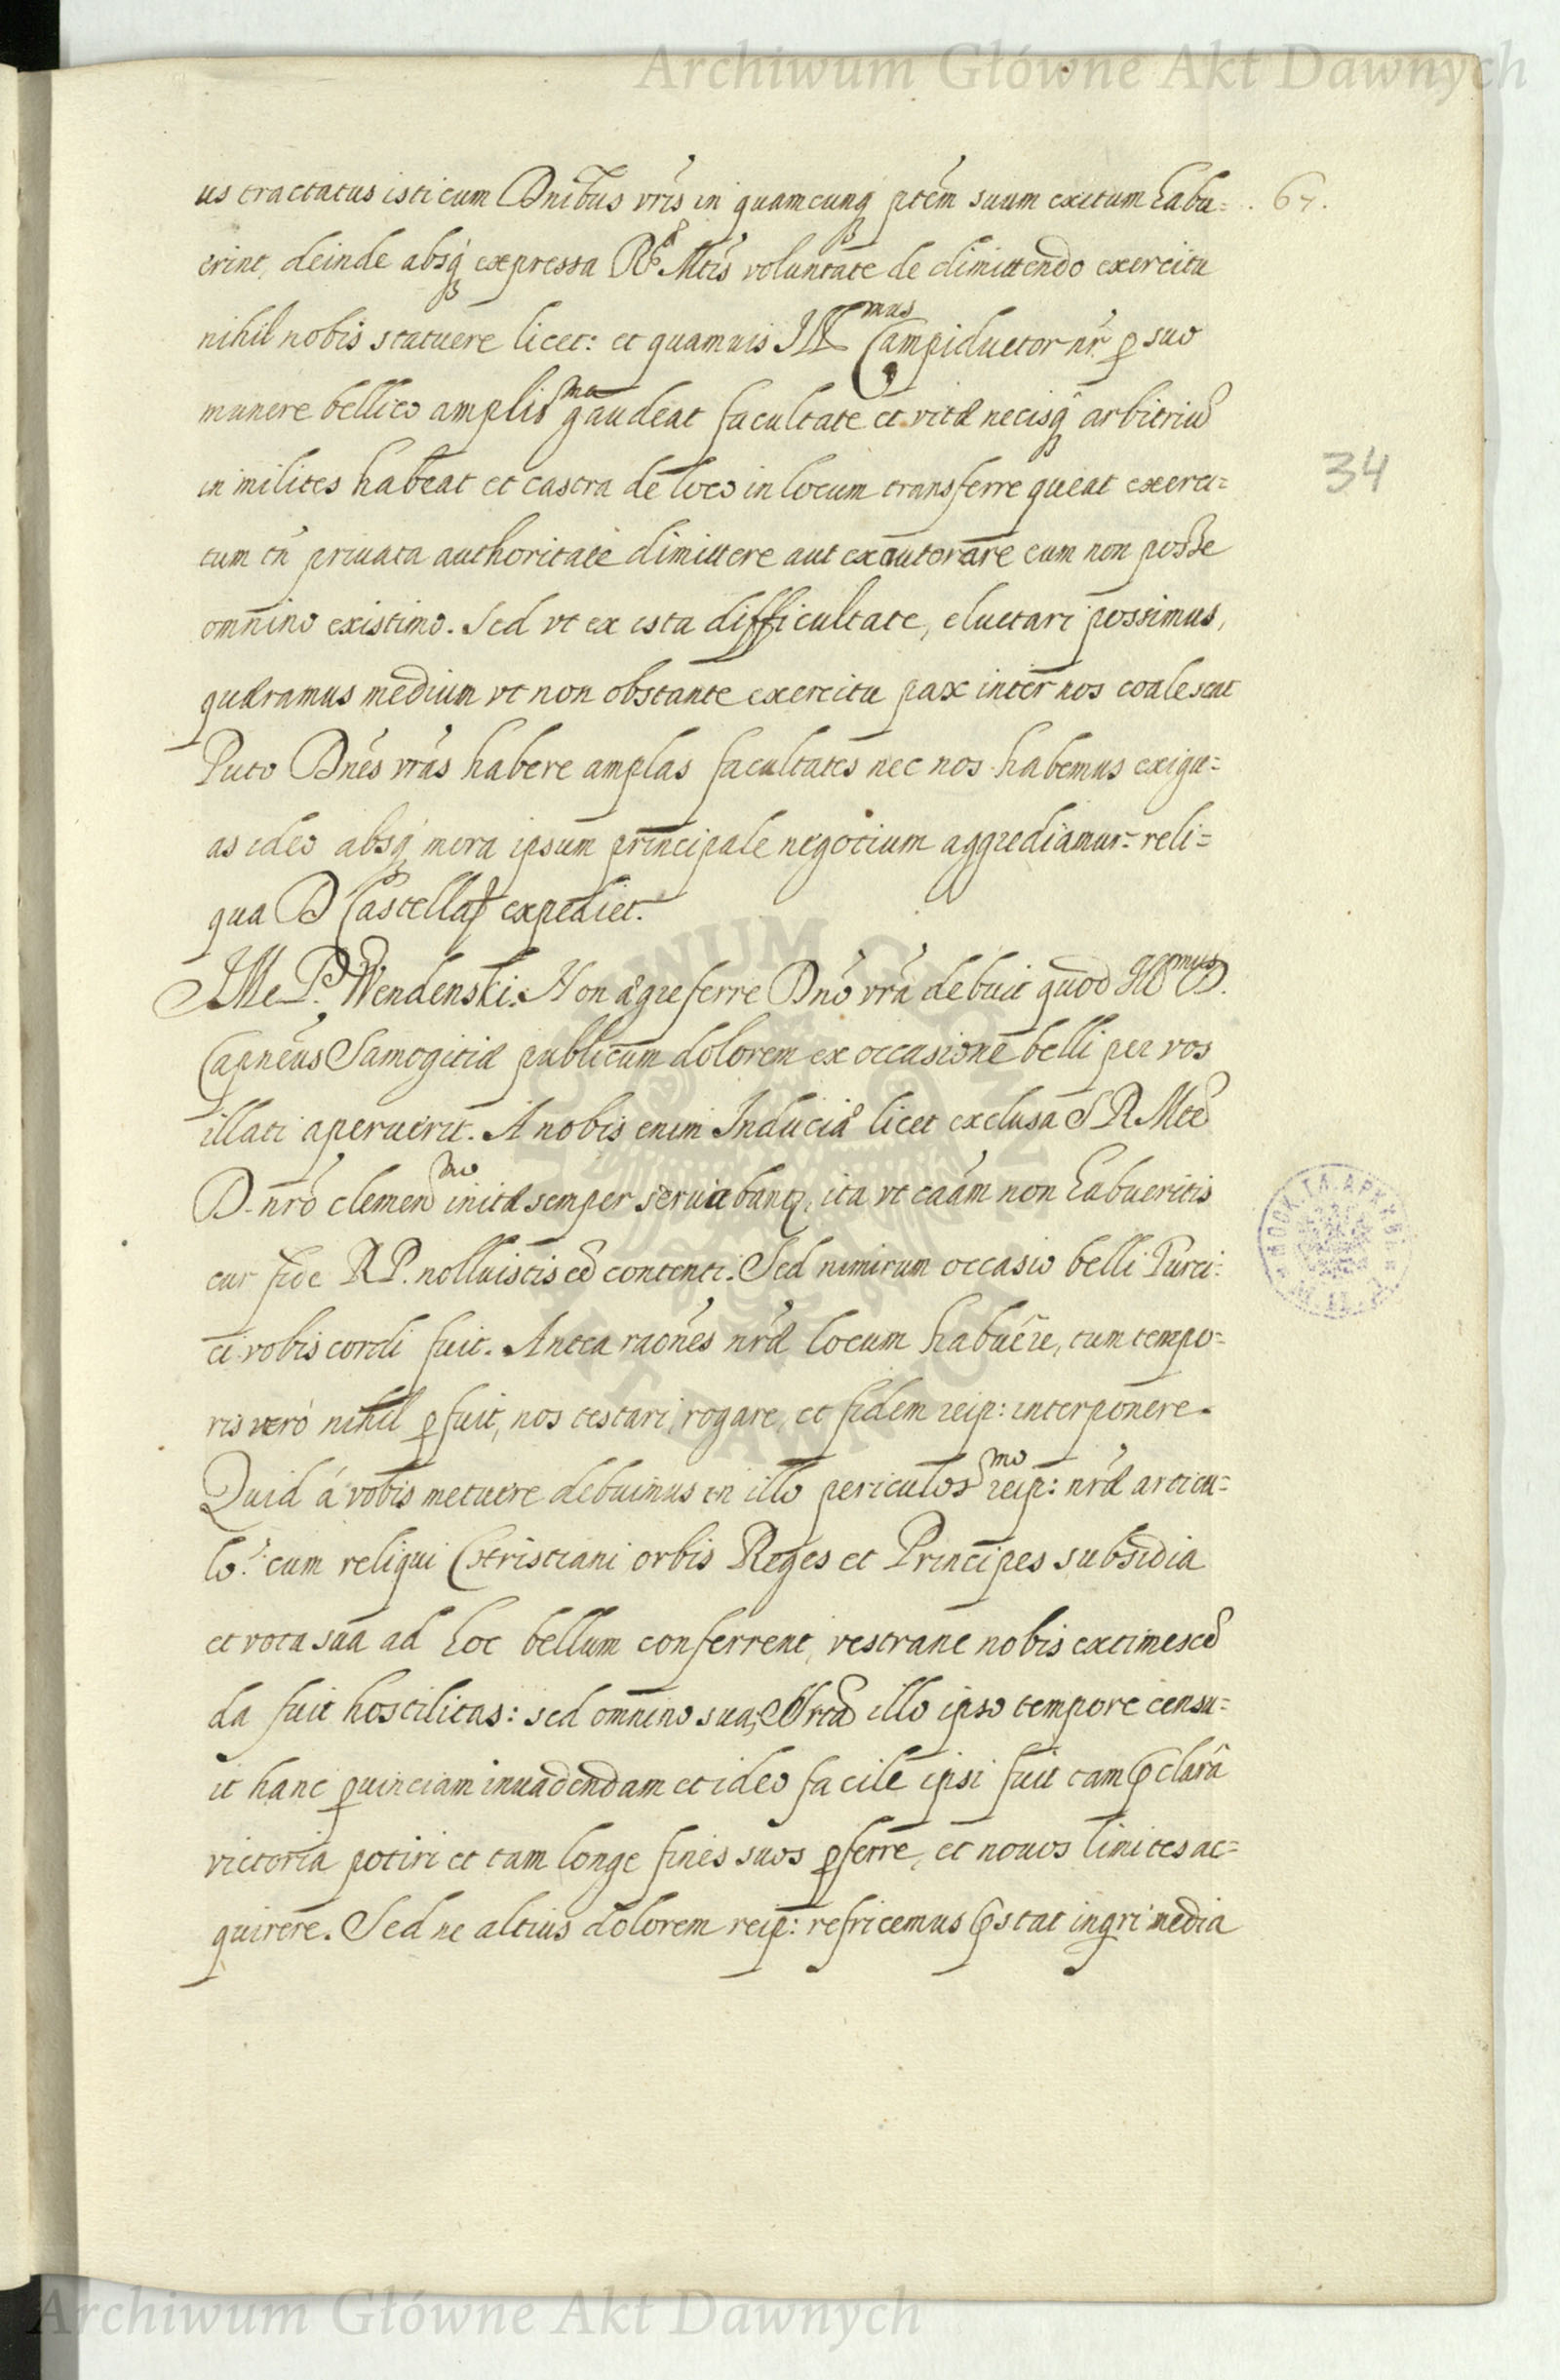 Archiwum Główne Akt Dawnych
us tractatus isti cum Dnibus vris in quamcunq ptem suum exitum habu= . 67.
erint, deinde absq expressa R. Mtis voluntate de dimittendo exercitu
nihil nobis statuere licet: et quamuis Ill mus Campiductor nr p suo
munere bellico amplis ma gaudeat facultate et vitæ necisq arbitriū
in milites habeat et castra de loco in locum transferre queat exerci=
34
tum tn priuata authoritate dimittere aut exautorare eum non posse
omnino existimo. Sed vt ex ista difficultate, eluctari possimus,
quæramus medium vt non obstante exercitu pax inter nos coalescat
Puto Dnes vras habere amplas facultates nec nos habemus exigu=
as ideo absq mora ipsum principale negotium aggrediamur: reli=
qua D Castella expediet.
JMe P. Wendenski. Non ægre ferre Dno vra debuit quod Ill mus D.
Capneus Samogitiæ publicum dolorem ex occasione belli per vos
illati aperuerit. A nobis enim Induciæ licet exclusa S R Mte
D. nro clemen mo initæ semper seruabantr, ita vt caam non habueritis
cur fide R P. nolluistis eē contenti. Sed nimirum occasio belli Turci=
ci vobis cordi fuit. Antea raones nræ locum habuêre, tum tempo=
ris verò nihil pfuit, nos testari, rogare, et fidem reip: interponere.
Quid á vobis metuere debuimus in illo periculos mo reip: nræ articu=
lo: cum reliqui Christiani orbis Reges et Principes subsidia
et vota sua ad hoc bellum conferrent, vestrane nobis extimescē
da fuit hostilitas: sed omnino sua illo ipso tempore censu=
it hanc puinciam inuadendam et ideo facile ipsi fuit tam pclarâ
victoria potiri et tam longe fines suos pferre, et nouos limites ac=
quirere. Sed ne altius dolorem reip: refricemus pstat ingri media
Archiwum Główne Akt Dawnych